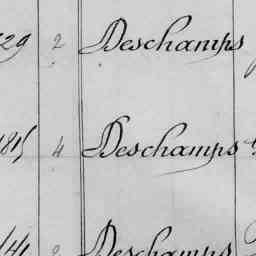 29 2 Deschamps
185 4 Deschamps
141 2 Deschamps